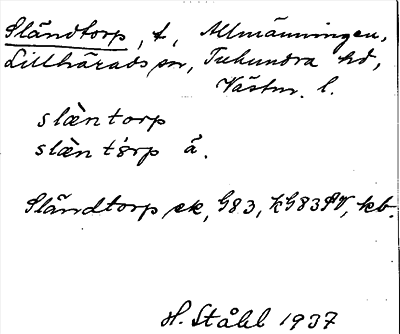 Sländtorp, t, Allmänningen,
Lillhärads sn, Tuhundra hd,
Västm. l.
slæ̀ntorp
slæ̀ntȯrp å.
Sländtorp ek, G83, KG83 , kb.
H. Ståhl 1937